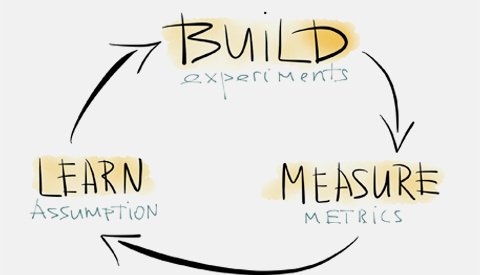 BUILD
experiments
MEASURE
METRICS
LEARN
ASSUMPTION